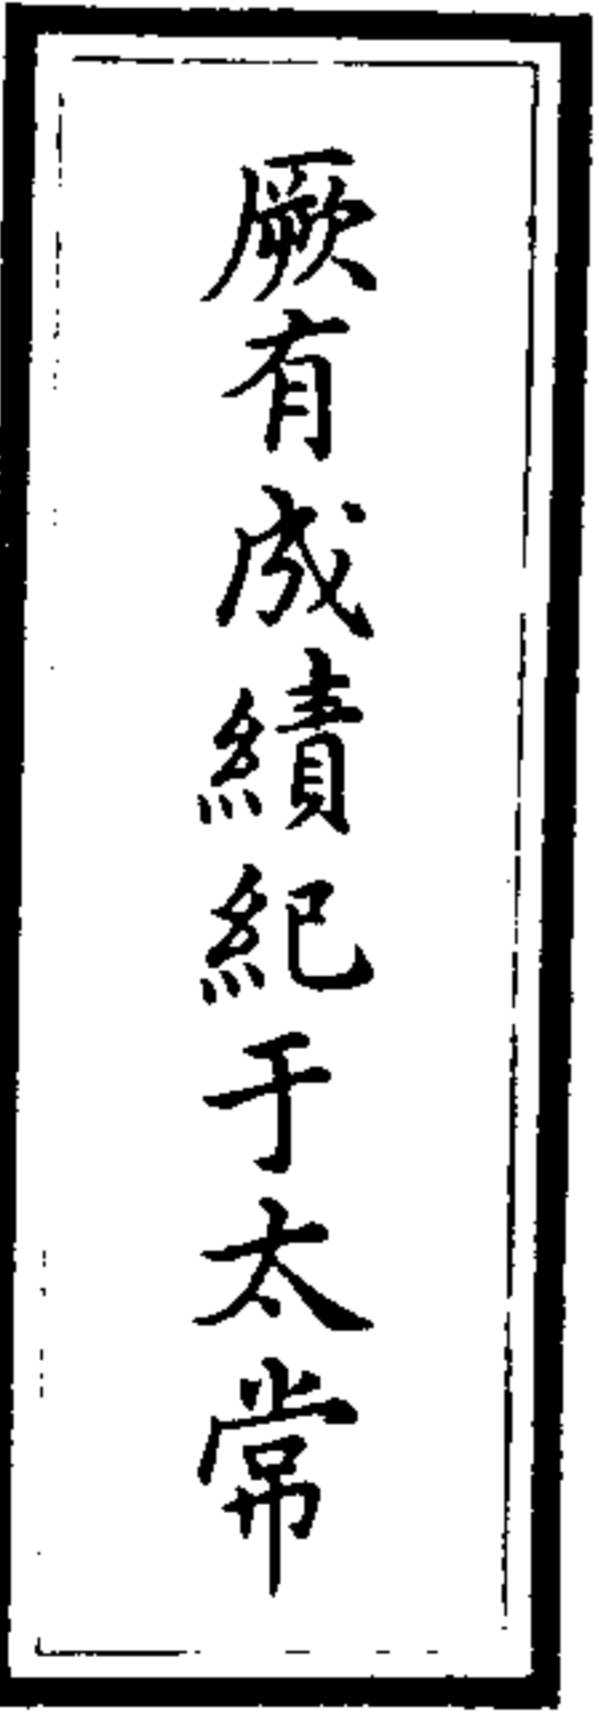 厥有成績紀于太常